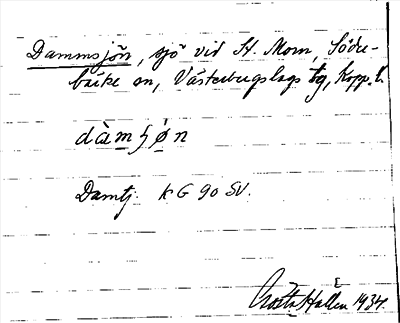 Dammsjön, sjö vid St. Morn, Söder-
bärke sn, Västerbergslags tg, Kopp. l.
dàmʃön
Damtj. KG 90 SV.
Gösta Hallén 1934.